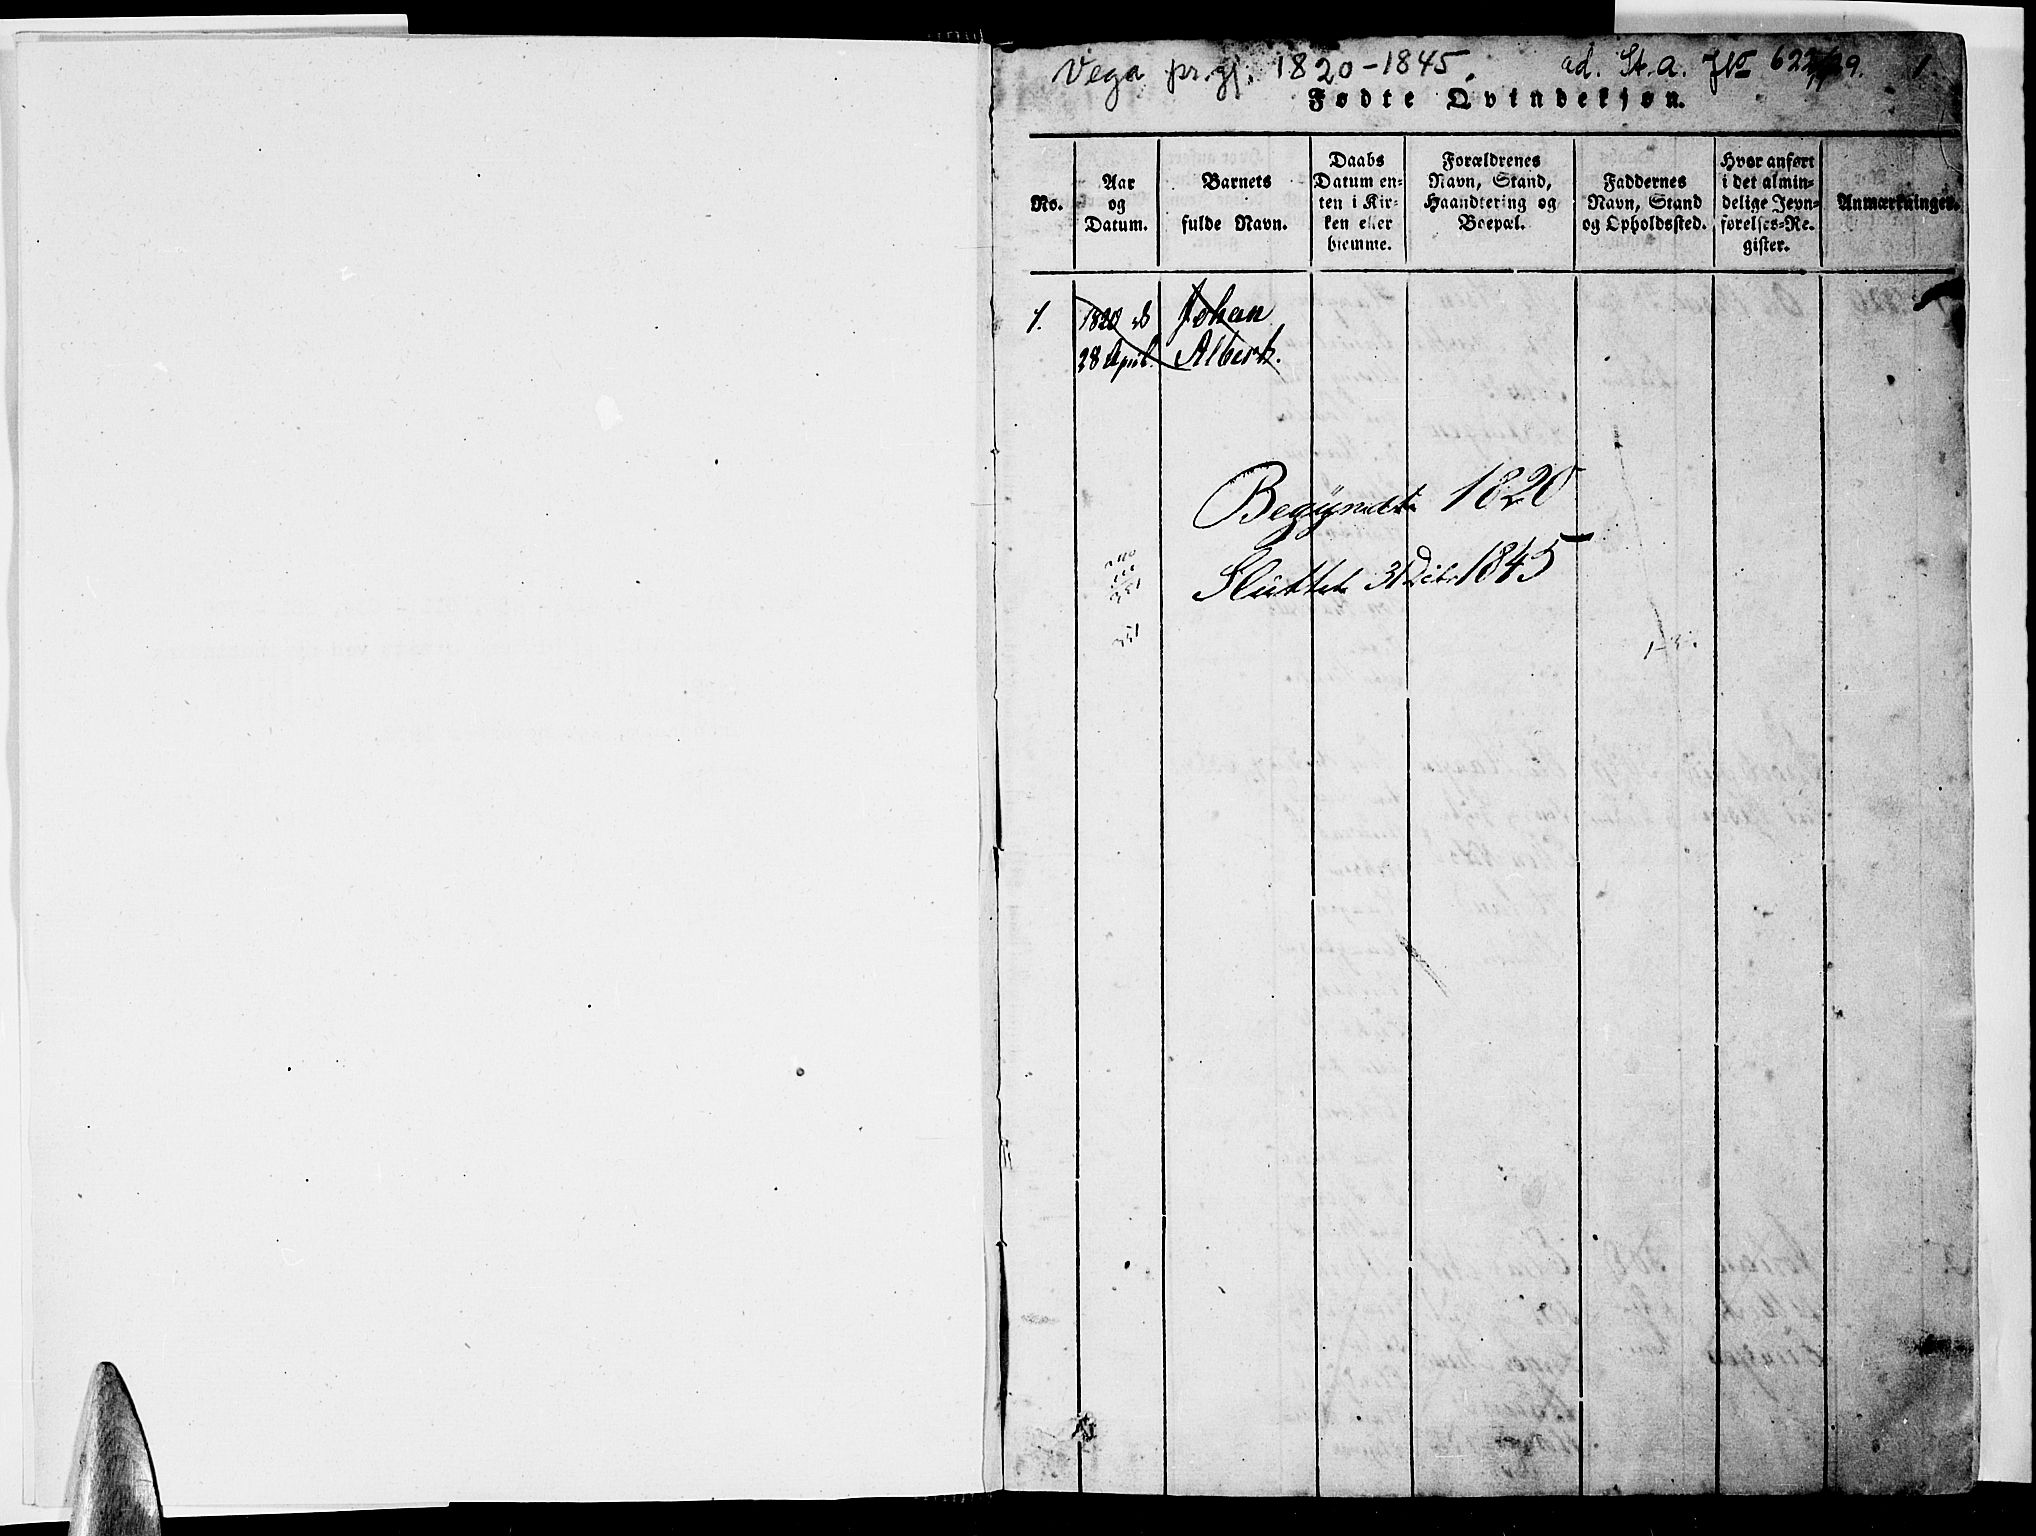 Vega pr.gj. 1820-1845. ad. St.a. JNo 622/29. 1
Fødte Qvindekjøn.
No.
Aar
og
Datum.
Barnets
fulde Navn.
Daabs
Datum en-
ten i Kir-
ken eller
hjemme.
Forældrenes
Navn, Stand,
Haandtering og
Boepæl.
Faddernes
Navn, Stand
og Opholdssted.
Hvor anført
i det almin-
delige Jevn-
førelses-Re-
gister.
Anmærkninger.
1. 1820 Johan
28 April. Albert.
Begyndt 1820
Sluttet 31 Dcbr 1845